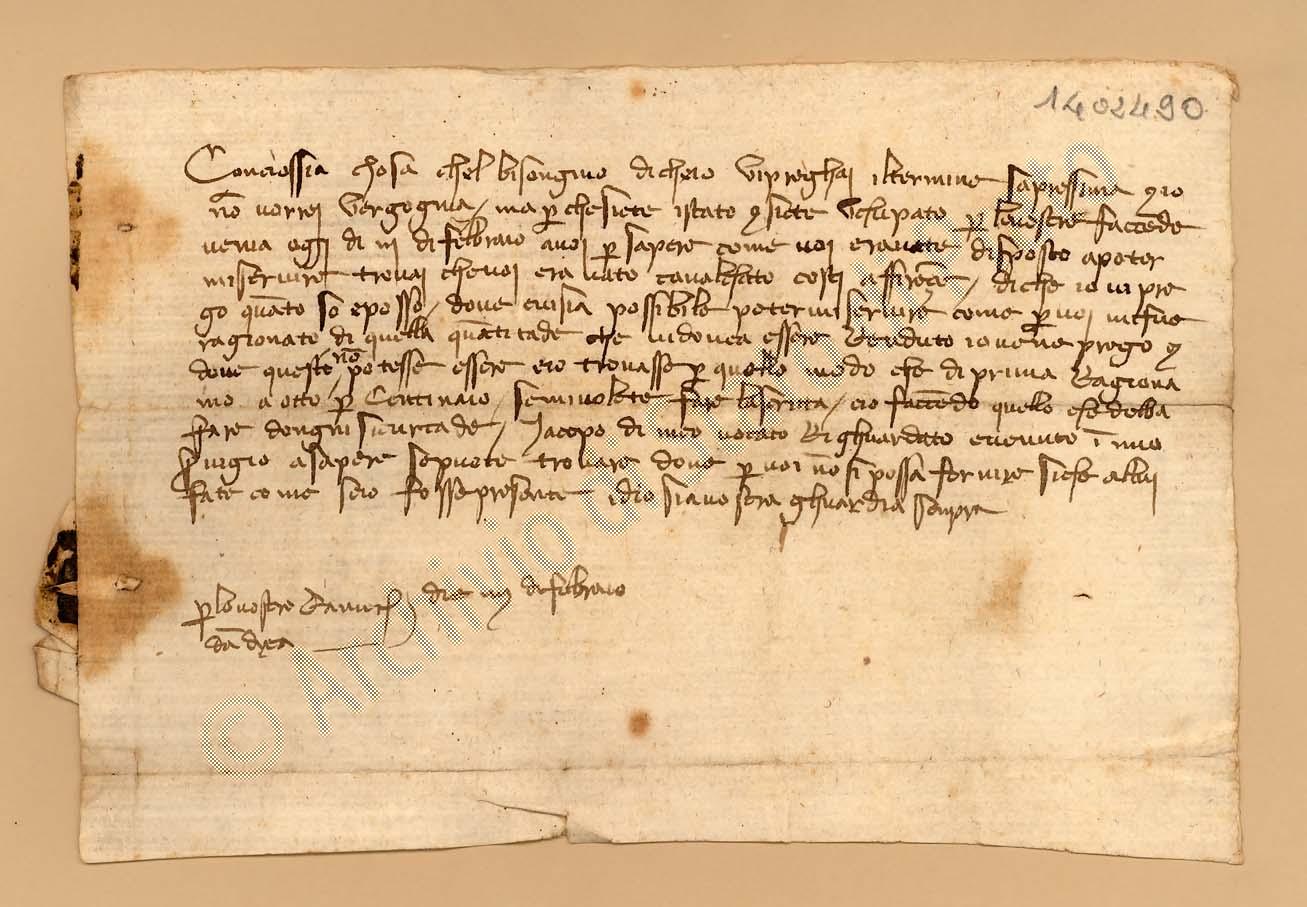 1402490
Conciossia chosa chel bisongnio dicheio vipreghai iltermine sapressima & io
nō vorrei vergognia / ma p̄ chesiete istato & siete vilupato p̄ levostre faccēde
venia ogi di iii di febraio avoi p̄ sapere come voi eravate disposto apoter
miservire trovai chevoi era vate cavalchato costi afirēçe / diche io vi pre
go quāto so eposso / dove civisia possibile potermi servire come p̄ voi mifue
ragionato di quella quātitade che vidovea essere renduto io vene prego &
dove questo nō potesse essere eio trovasse p̄ quello modo che di prima ragiona
mo a otto p̄ centinaio / semivolete fare lascritta / eio faccēdo quello che debba
fare dongni sicurtade / Jacopo di meo notato righuardato evenuto ī mio
servigio asapere sepuote trovare dove p̄ voi nō si possa fornire siche allui
fate come seio fosse presente idio siavostra ghuardia senpre
p̄ lovostro die iiii difebraio
dādrea
© Archivio di Stato